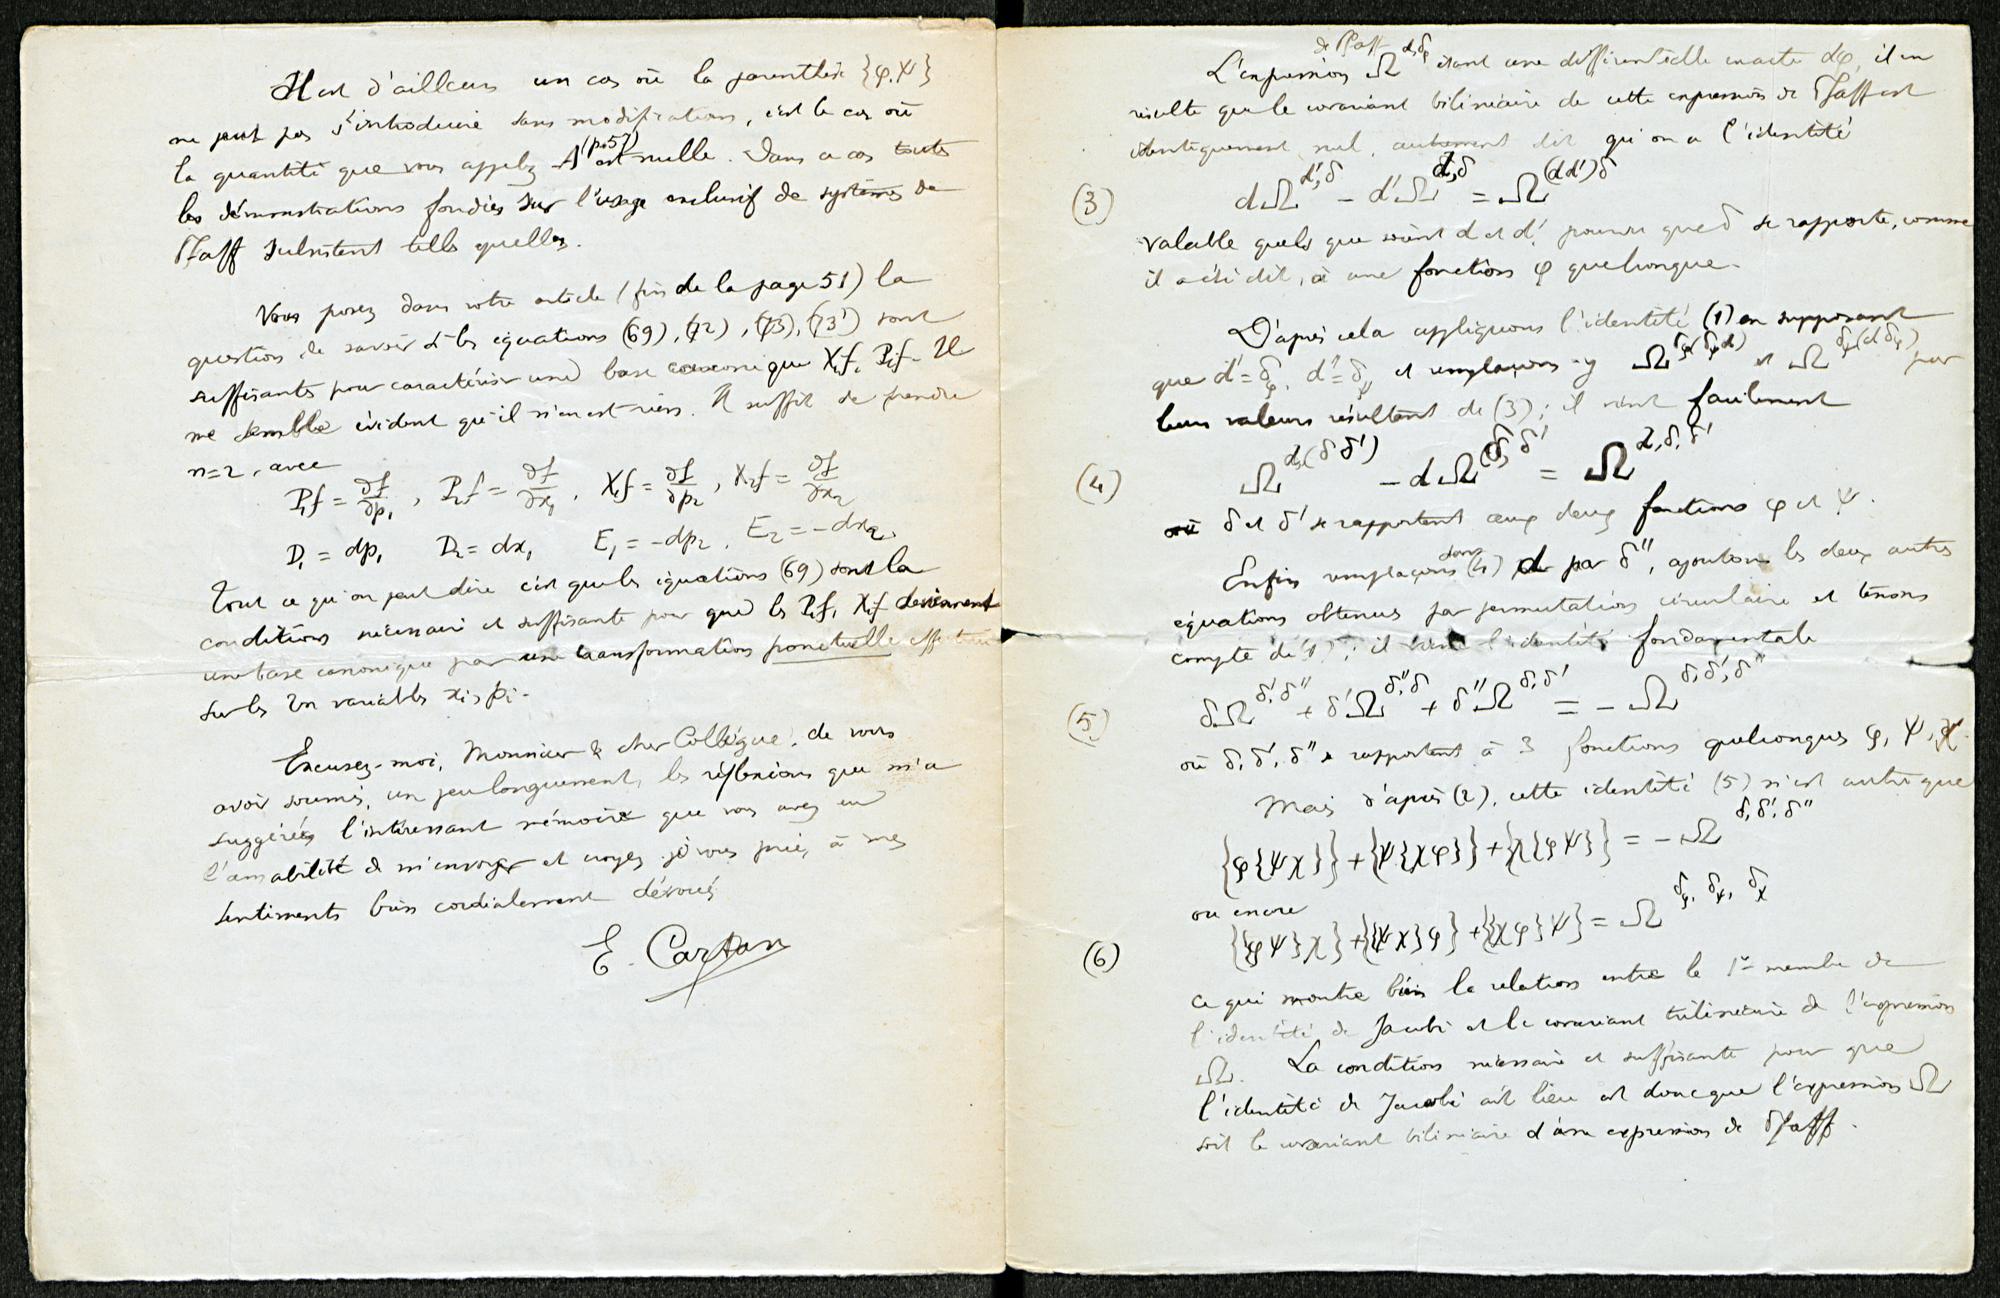 Il est d'ailleurs un cas où la parenthèse {φ.ψ}
ne peut pas s'introduire sans modifications, c'est le cas où
la quantité que vous appelez A (p.57) est nulle. Dans ce cas toutes
les démonstrations fondées sur l'usage exclusif de systèmes de
Pfaff subsistent telles quelles.
Vous posez dans votre article (fin de la page 51) la
question de savoir si les équations (69), (72), (73), (73') sont
suffisantes pour caractériser une base canonique Xif, Pif. Il
me semble évident qu'il n'en est rien. Il suffit de prendre
n=2, avec
P₁f = ∂f/∂p₁, P₂f = ∂f/∂x₁, X₁f = ∂f/∂p₂, X₂f = ∂f/∂x₂
D₁ = dp₁ D₂ = dx₁ E₁ = -dp₂, E₂ = -dx₂.
Tout ce qu'on peut dire c'est que les équations (69) sont la
conditions nécessaire et suffisante pour que les Pif, Xif deviennent
une base canonique par une transformation ponctuelle effectuée
sur les 2n variables xi, pi.
Excusez-moi, Monsieur & cher Collègue, de vous
avoir soumis, un peu longuement, les réflexions que m'a
suggérées l'intéressant mémoire que vous avez eu
l'amabilité de m'envoyer et croyez, je vous prie, à mes
sentiments bien cordialement dévoués
E. Cartan
L'expression de Pfaff Ω^{d,δφ} étant une différentielle exacte dφ, il en
résulte que le covariant bilinéaire de cette expression de Pfaff est
identiquement nul, autrement dit qu'on a l'identité
(3) dΩ^{d',δ} - d'Ω^{d,δ} = Ω^{(dd')δ}
valable quels que soient d et d', pourvu que δ se rapporte, comme
il a été dit, à une fonction φ quelconque.
D'après cela appliquons l'identité (1) en supposant
que d' = δφ, d'' = δψ et remplaçons-y Ω^{δφ(δψd)} et Ω^{δψ(dδφ)} par
leurs valeurs résultant de (3) ; il vient facilement
(4) Ω^{d,(δδ')} - dΩ^{δ,δ'} = Ω^{d,δ,δ'}
où δ et δ' se rapportent aux deux fonctions φ et ψ.
Enfin remplaçons dans (4) d par δ'', ajoutons les deux autres
équations obtenues par permutation circulaire et tenons
compte de (1) ; il vient l'identité fondamentale
(5) δΩ^{δ',δ''} + δ'Ω^{δ'',δ} + δ''Ω^{δ,δ'} = - Ω^{δ,δ',δ''}
où δ, δ', δ'' se rapportent à 3 fonctions quelconques φ, ψ, χ.
Mais d'après (2), cette identité (5) n'est autre que
{φ{ψχ}} + {ψ{χφ}} + {χ{φψ}} = - Ω^{δ,δ',δ''}
ou encore
(6) {{φψ}χ} + {{ψχ}φ} + {{χφ}ψ} = Ω^{δφ, δψ, δχ}
ce qui montre bien la relation entre le 1er membre de
l'identité de Jacobi et le covariant trilinéaire de l'expression
Ω. La condition nécessaire et suffisante pour que
l'identité de Jacobi ait lieu est donc que l'expression Ω
soit le covariant bilinéaire d'une expression de Pfaff.